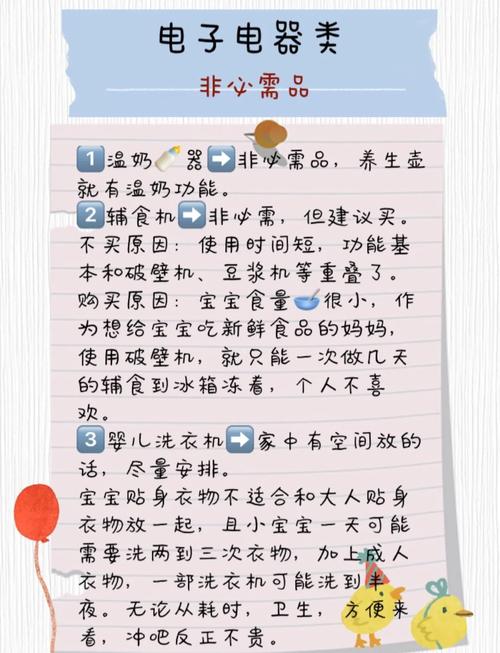 电子电器类
非必需品
1温奶🍼器➡️非必需品，养生壶
就有温奶功能。
2辅食机➡️非必需，但建议买。
不买原因：使用时间短，功能基
本和破壁机、豆浆机等重叠了。
购买原因：宝宝食量🥣很小，作
为想给宝宝吃新鲜食品的妈妈，
使用破壁机，就只能一次做几天
的辅食到冰箱冻着，个人不喜
欢。
3婴儿洗衣机➡️家中有空间放的
话，尽量安排。
宝宝贴身衣物不适合和大人贴身
衣物放一起，且小宝宝一天可能
需要洗两到三次衣物，加上成人
衣物，一部洗衣机可能洗到半
夜。无论从耗时，卫生，方便来
看，冲吧反正不贵。